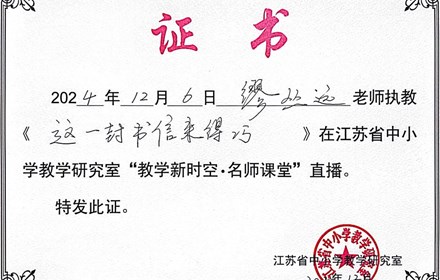 证 书
2024年12月6日 缪 老师执教
《这一封书信来得巧》在江苏省中小
学教学研究室“教学新时空·名师课堂”直播。
特发此证。
江苏省中小学教学研究室
江苏省中小学教学研究室